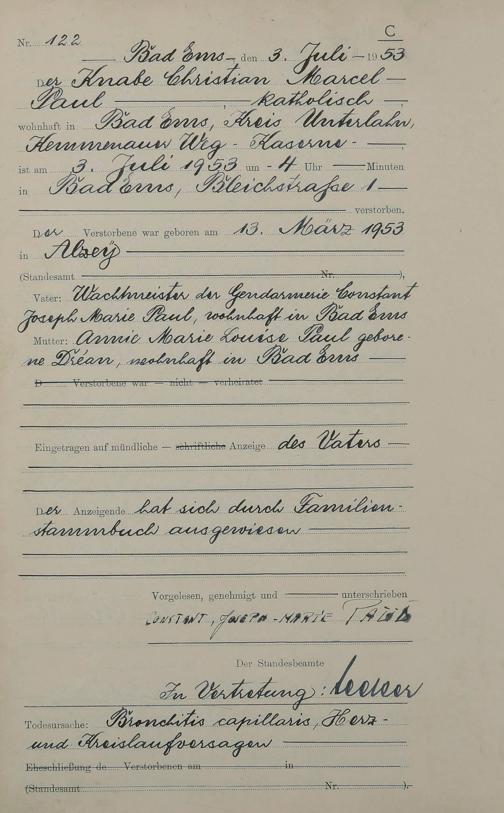 C
Nr. 122
Bad Ems, den 3. Juli 1953
Der Knabe Christian Marcel
Paul, katholisch,
wohnhaft in Bad Ems, Kreis Unterlahn,
Kemmenauer Weg - Kaserne -
ist am 3. Juli 1953 um - 4 Uhr — Minuten
in Bad Ems, Bleichstraße 1
verstorben.
Der Verstorbene war geboren am 13. März 1953
in Alzey
(Standesamt — Nr. —),
Vater: Wachtmeister der Gendarmerie Constant
Joseph Marie Paul, wohnhaft in Bad Ems
Mutter: Annic Marie Louise Paul gebore-
ne Dréan, wohnhaft in Bad Ems
D— Verstorbene war — nicht — verheiratet
Eingetragen auf mündliche — schriftliche Anzeige des Vaters
Der Anzeigende hat sich durch Familien-
stammbuch ausgewiesen
Vorgelesen, genehmigt und — unterschrieben
CONSTANT, JOSEPH-MARIE PAUL
Der Standesbeamte
In Vertretung:
Todesursache: Bronchitis capillaris, Herz-
und Kreislaufversagen
Eheschließung de Verstorbenen am — in —
(Standesamt — Nr. —).